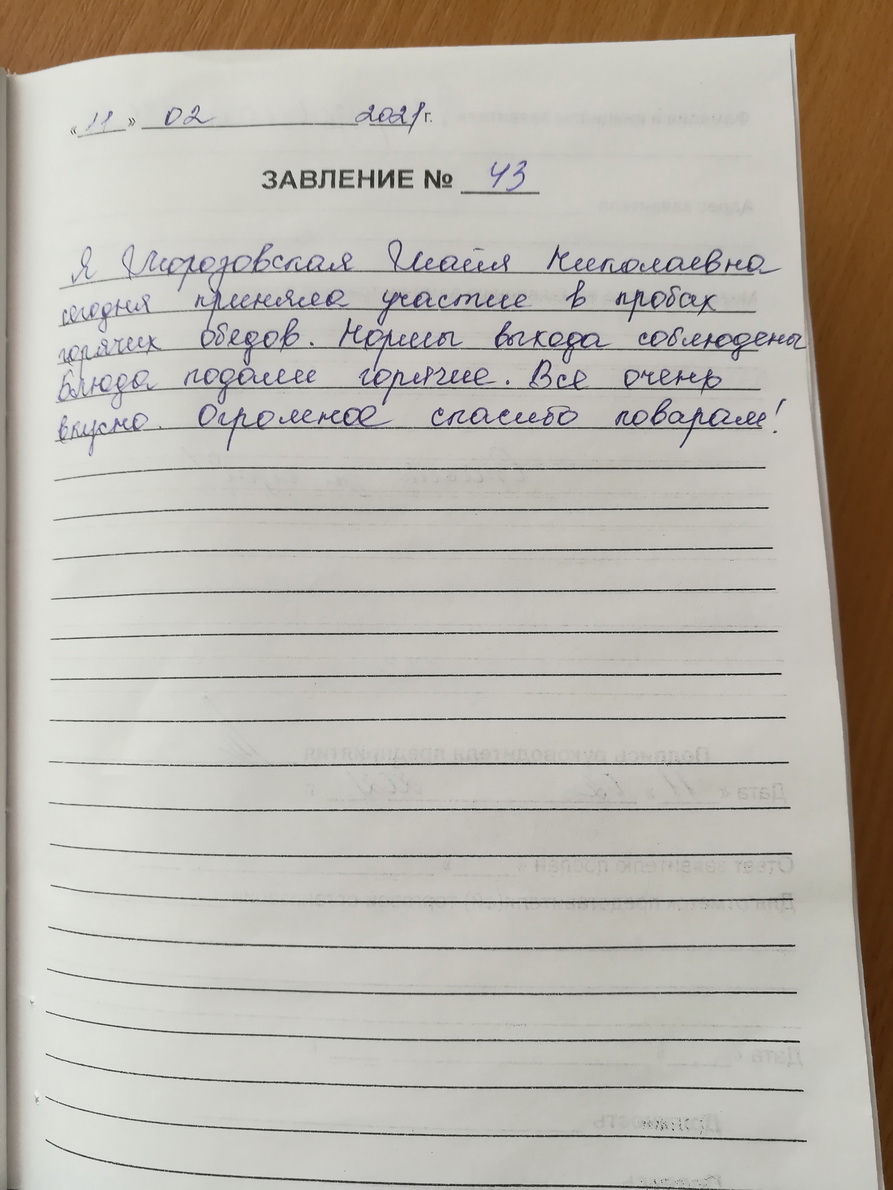 «11» 02 2021 г.
ЗАВЛЕНИЕ № 43
Я Морозовская Майя Николаевна
сегодня приняла участие в пробах
горячих обедов. Нормы выхода соблюдены
Блюда подали горячие. Все очень
вкусно. Огромное спасибо поварам!